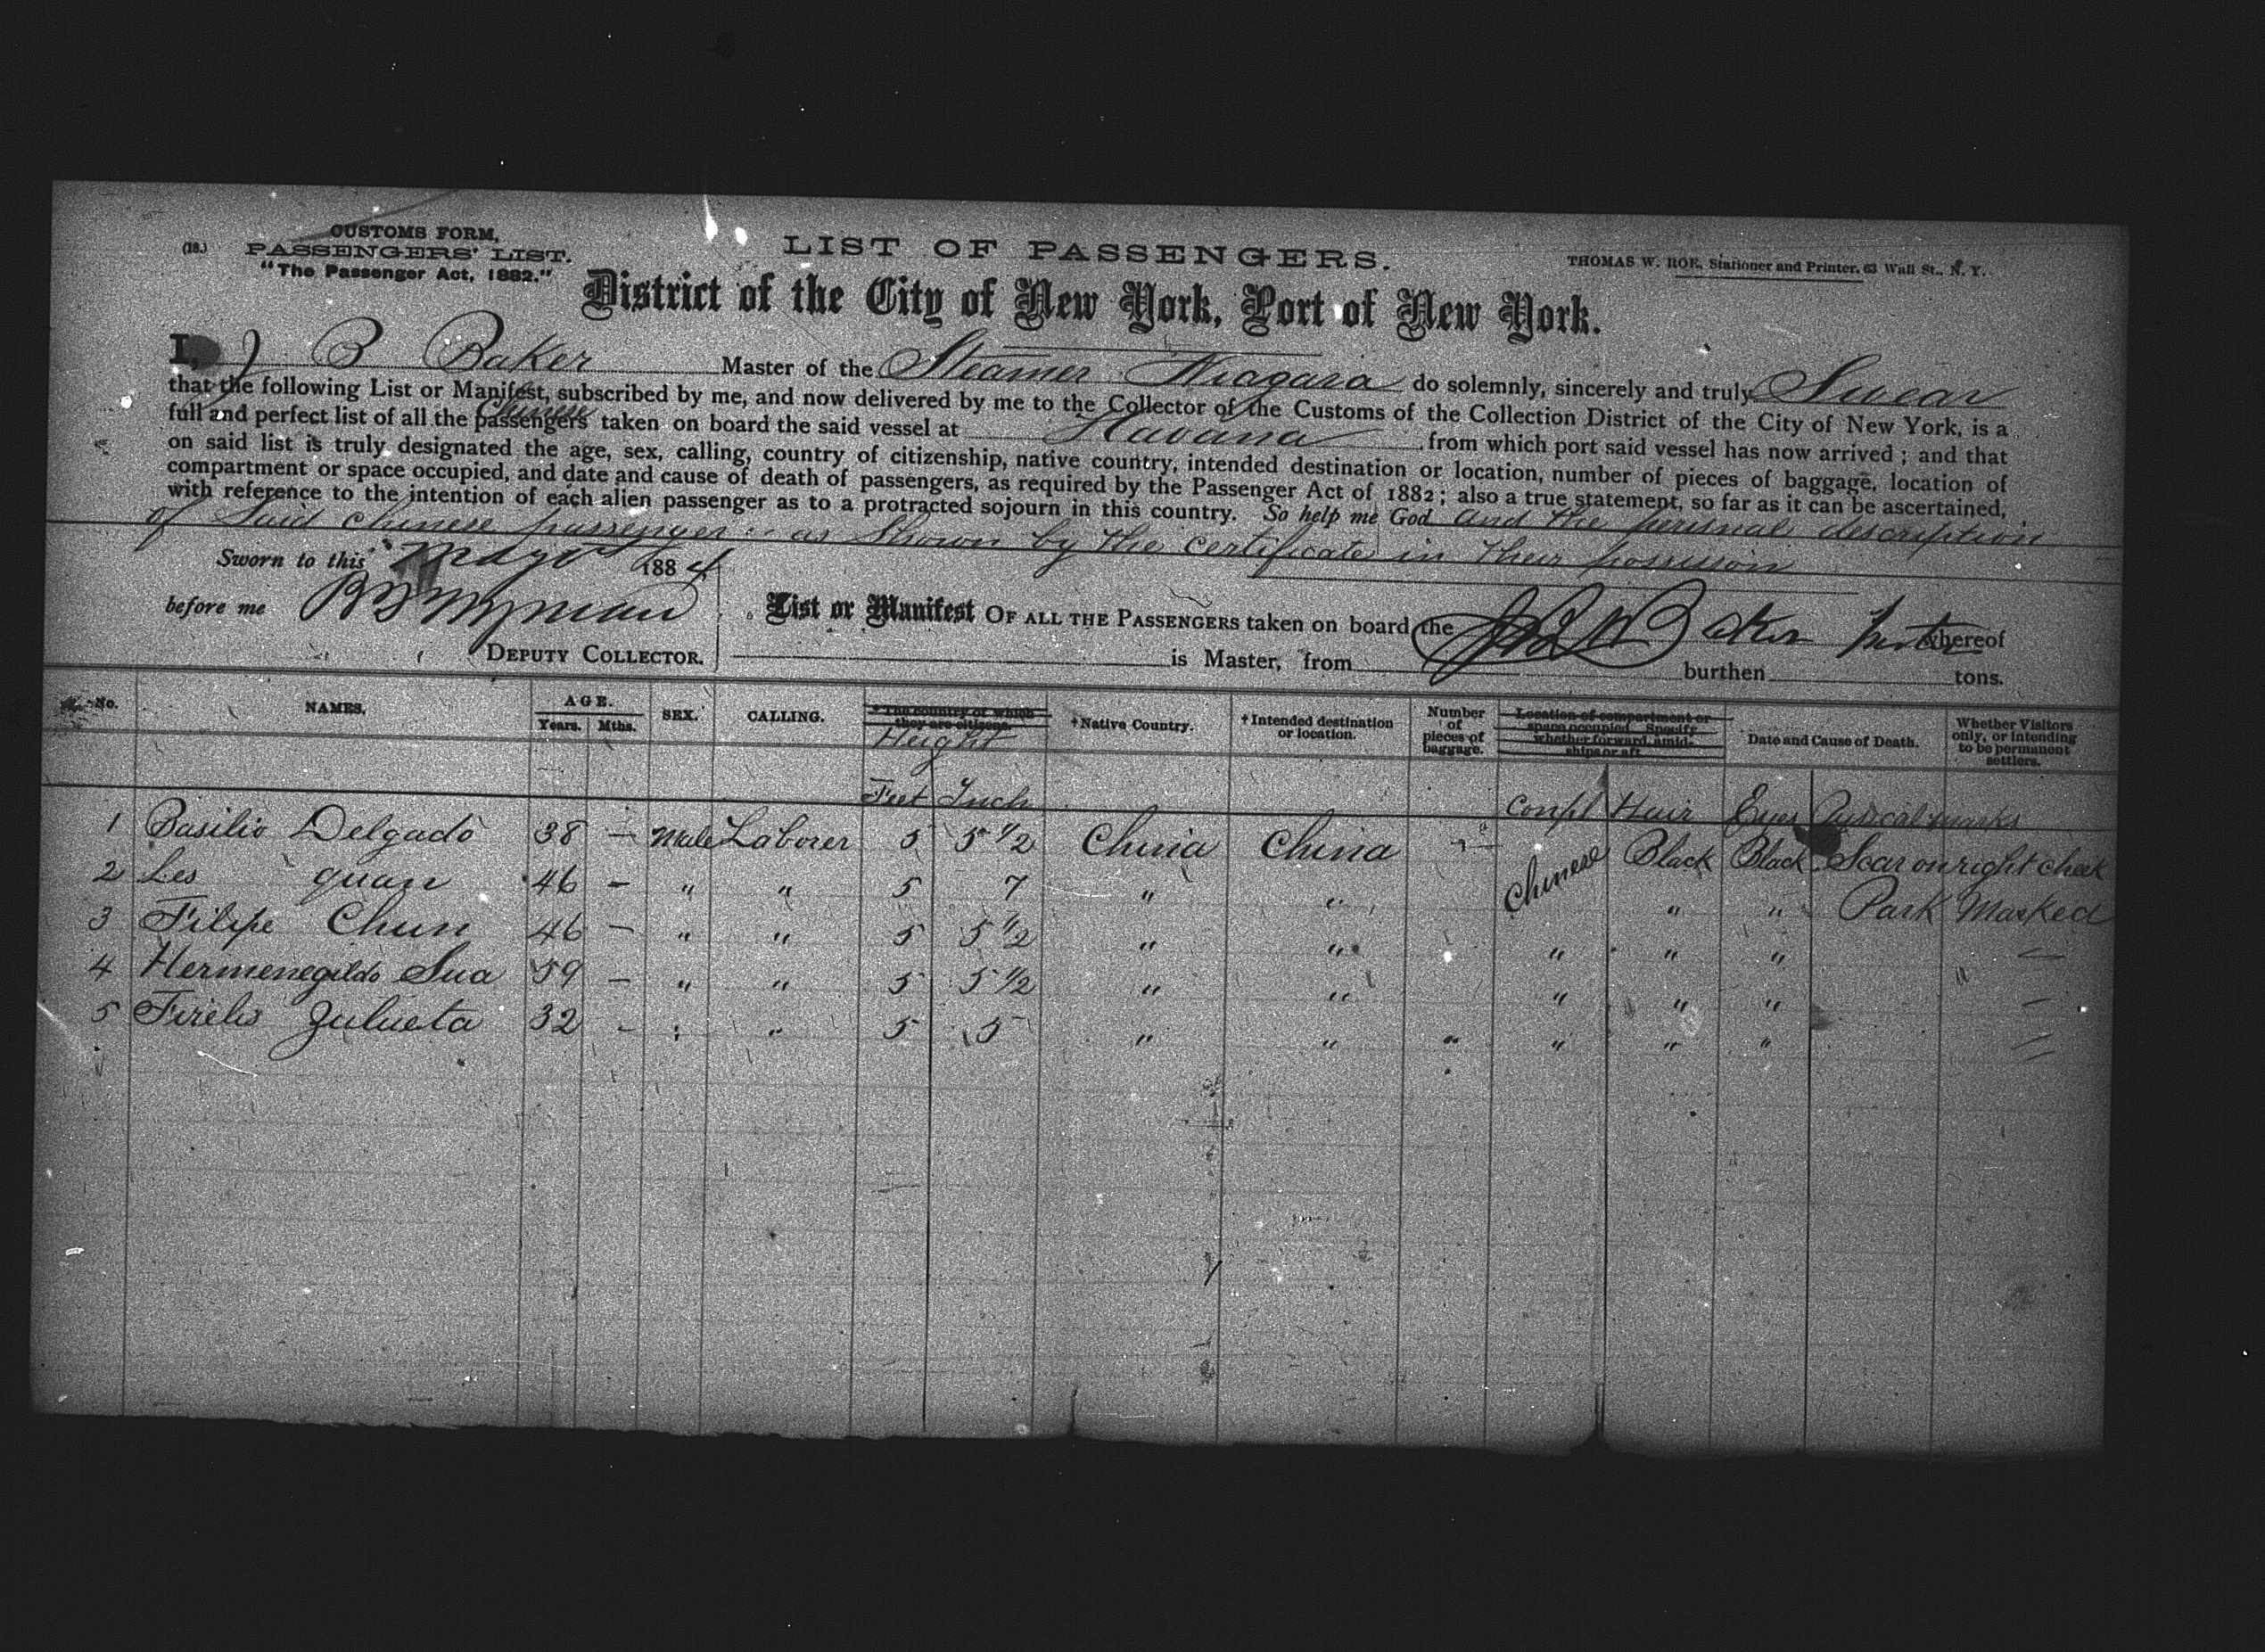 (18.) CUSTOMS FORM,
PASSENGERS' LIST.
"The Passenger Act, 1882."
LIST OF PASSENGERS.
THOMAS W. ROE, Stationer and Printer, 63 Wall St., N. Y.
District of the City of New York, Port of New York.
I, J B Baker Master of the Steamer Niagara do solemnly, sincerely and truly Swear
that the following List or Manifest, subscribed by me, and now delivered by me to the Collector of the Customs of the Collection District of the City of New York, is a
full and perfect list of all the Chinese passengers taken on board the said vessel at Havana from which port said vessel has now arrived; and that
on said list is truly designated the age, sex, calling, country of citizenship, native country, intended destination or location, number of pieces of baggage, location of
compartment or space occupied, and date and cause of death of passengers, as required by the Passenger Act of 1882; also a true statement, so far as it can be ascertained,
with reference to the intention of each alien passenger as to a protracted sojourn in this country. So help me God and the personal description
of said chinese passengers as shown by the certificate in their possession
Sworn to this May 1884
before me
DEPUTY COLLECTOR.
List or Manifest OF ALL THE PASSENGERS taken on board the J B Baker whereof
is Master, from burthen tons.
No. NAMES. AGE. Years. Mths. SEX. CALLING. * The country of which they are citizens. Height † Native Country. † Intended destination or location. Number of pieces of baggage. Location of compartment or space occupied. Specify whether forward, amidships or aft. Date and Cause of Death. Whether Visitors only, or intending to be permanent settlers.
Feet Inch Compl Hair Eyes marks
1 Basilio Delgado 38 — Male Laborer 5 5 1/2 China China Chinese Black Black Scar on right cheek
2 Les quan 46 — " " 5 7 " " " " Park Marked
3 Filipe Chun 46 — " " 5 5 1/2 " " " " " —
4 Hermenegildo Sua 59 — " " 5 5 1/2 " " " " " —
5 Zulueta 32 — " " 5 5 " " " " " " —